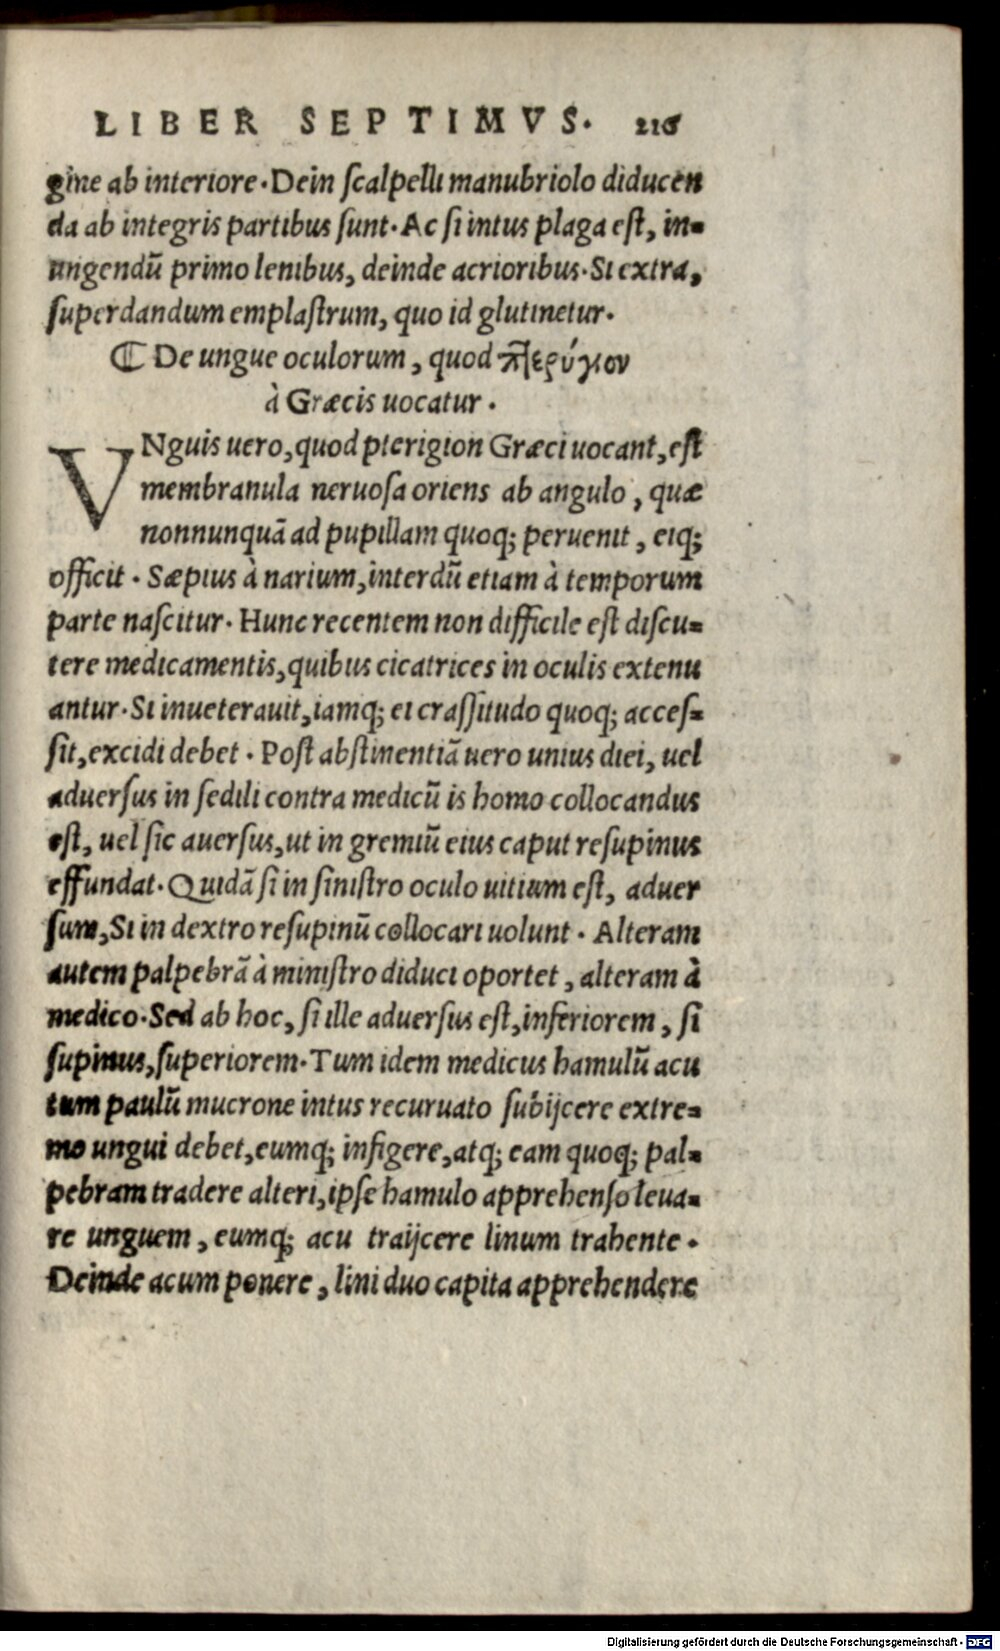 LIBER SEPTIMVS. 216
gine ab interiore. Dein ſcalpelli manubriolo diducen
da ab integris partibus ſunt. Ac ſi intus plaga eſt, in-
ungendũ primo lenibus, deinde acrioribus. Si extra,
ſuperdandum emplaſtrum, quo id glutinetur.
⸿ De ungue oculorum, quod πτερύγιον
à Græcis uocatur.
VNguis uero, quod pterigion Græci uocant, eſt
membranula neruoſa oriens ab angulo, quæ
nonnunquã ad pupillam quoq; peruenit, eiq;
officit. Sæpius à narium, interdũ etiam à temporum
parte naſcitur. Hunc recentem non difficile eſt diſcu-
tere medicamentis, quibus cicatrices in oculis extenu
antur. Si inueterauit, iamq; ei craſſitudo quoq; acceſ-
ſit, excidi debet. Poſt abſtinentiã uero unius diei, uel
aduerſus in ſedili contra medicũ is homo collocandus
eſt, uel ſic auerſus, ut in gremiũ eius caput reſupinus
effundat. Quidã ſi in ſiniſtro oculo uitium eſt, aduer
ſum, Si in dextro reſupinũ collocari uolunt. Alteram
autem palpebrã à miniſtro diduci oportet, alteram à
medico. Sed ab hoc, ſi ille aduerſus eſt, inferiorem, ſi
ſupinus, ſuperiorem. Tum idem medicus hamulũ acu
tum paulũ mucrone intus recuruato ſubijcere extre-
mo ungui debet, eumq; infigere, atq; eam quoq; pal-
pebram tradere alteri, ipſe hamulo apprehenſo leua-
re unguem, eumq; acu traijcere linum trahente.
Deinde acum ponere, lini duo capita apprehendere
Digitalisierung gefördert durch die Deutsche Forschungsgemeinschaft - DFG